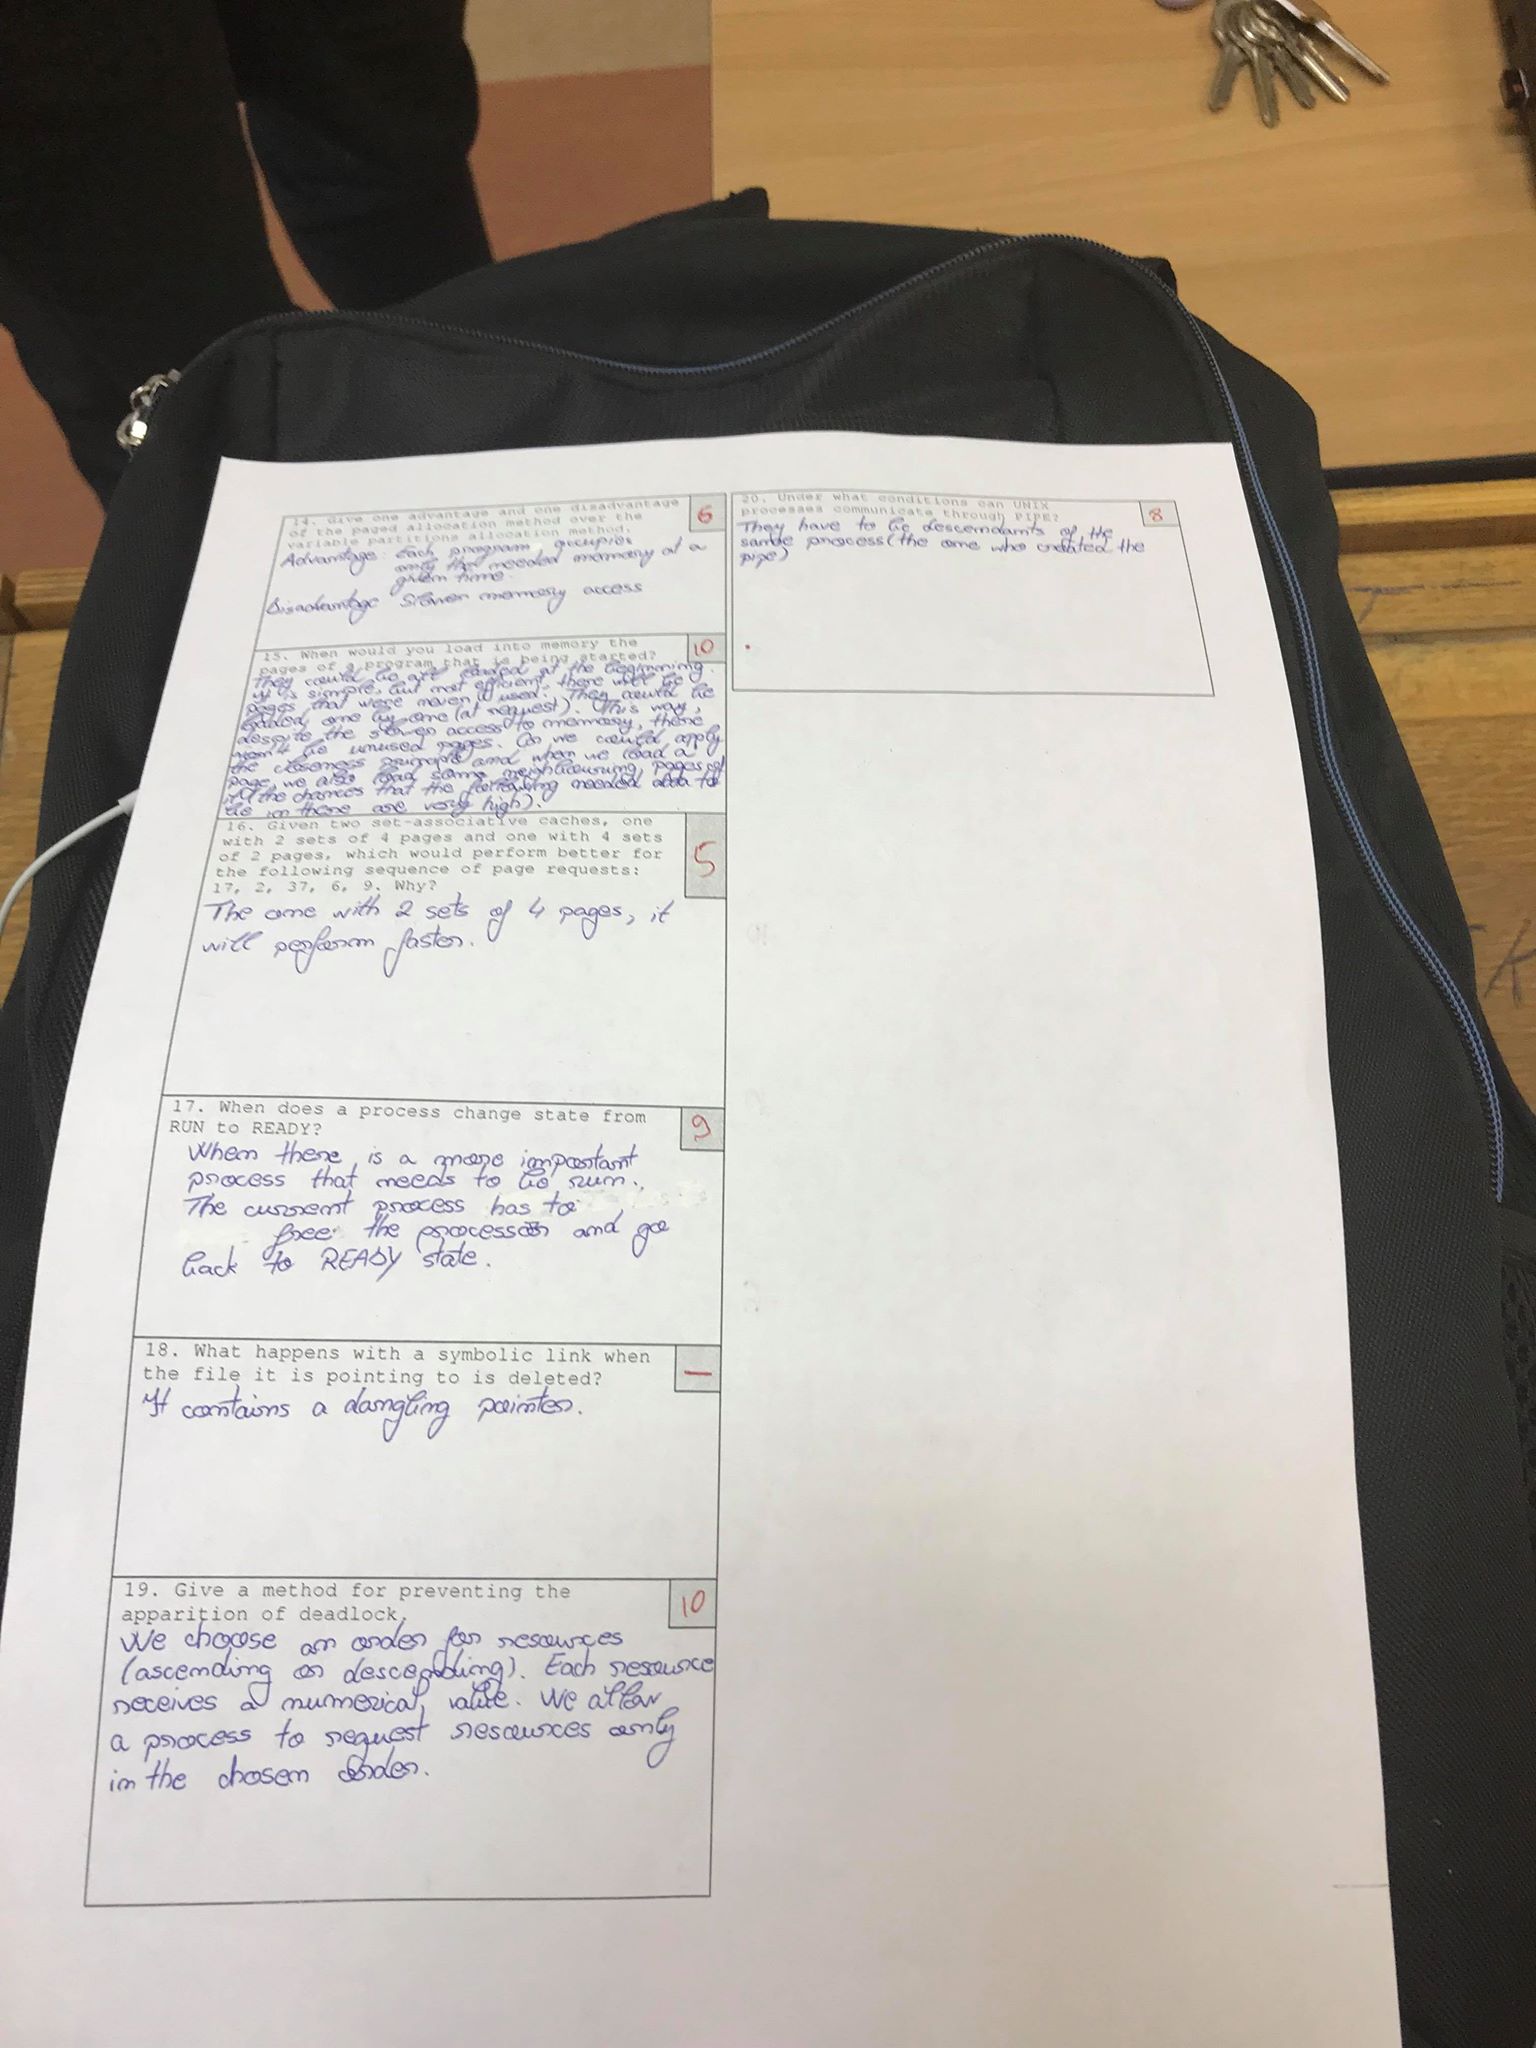 14. Give one advantage and one disadvantage
of the paged allocation method over the
variable partitions allocation method.
6
Advantage: Each program occupies
only the needed memory at a
given time.
Disadvantage Slower memory access
15. When would you load into memory the
pages of a program that is being started?
10
They could be all loaded at the beginning.
It is simple, but not efficient, there will be
pages that were never used. They could be
loaded one by one (at request). This way,
despite the slower access to memory, there
won't be unused pages. Or we could apply
the closeness principle and when we load a
page we also load some neighbouring pages of
it (the chances that the following needed data to
be in there are very high).
16. Given two set-associative caches, one
with 2 sets of 4 pages and one with 4 sets
of 2 pages, which would perform better for
the following sequence of page requests:
17, 2, 37, 6, 9. Why?
5
The one with 2 sets of 4 pages, it
will perform faster.
17. When does a process change state from
RUN to READY?
9
When there is a more important
process that needs to be run.
The current process has to
free the processor and go
back to READY state.
18. What happens with a symbolic link when
the file it is pointing to is deleted?
—
It contains a dangling pointer.
19. Give a method for preventing the
apparition of deadlock.
10
We choose an order for resources
(ascending or descending). Each resource
receives a numerical value. We allow
a process to request resources only
in the chosen order.
20. Under what conditions can UNIX
processes communicate through PIPE?
8
They have to be descendants of the
same process (the one who created the
pipe)